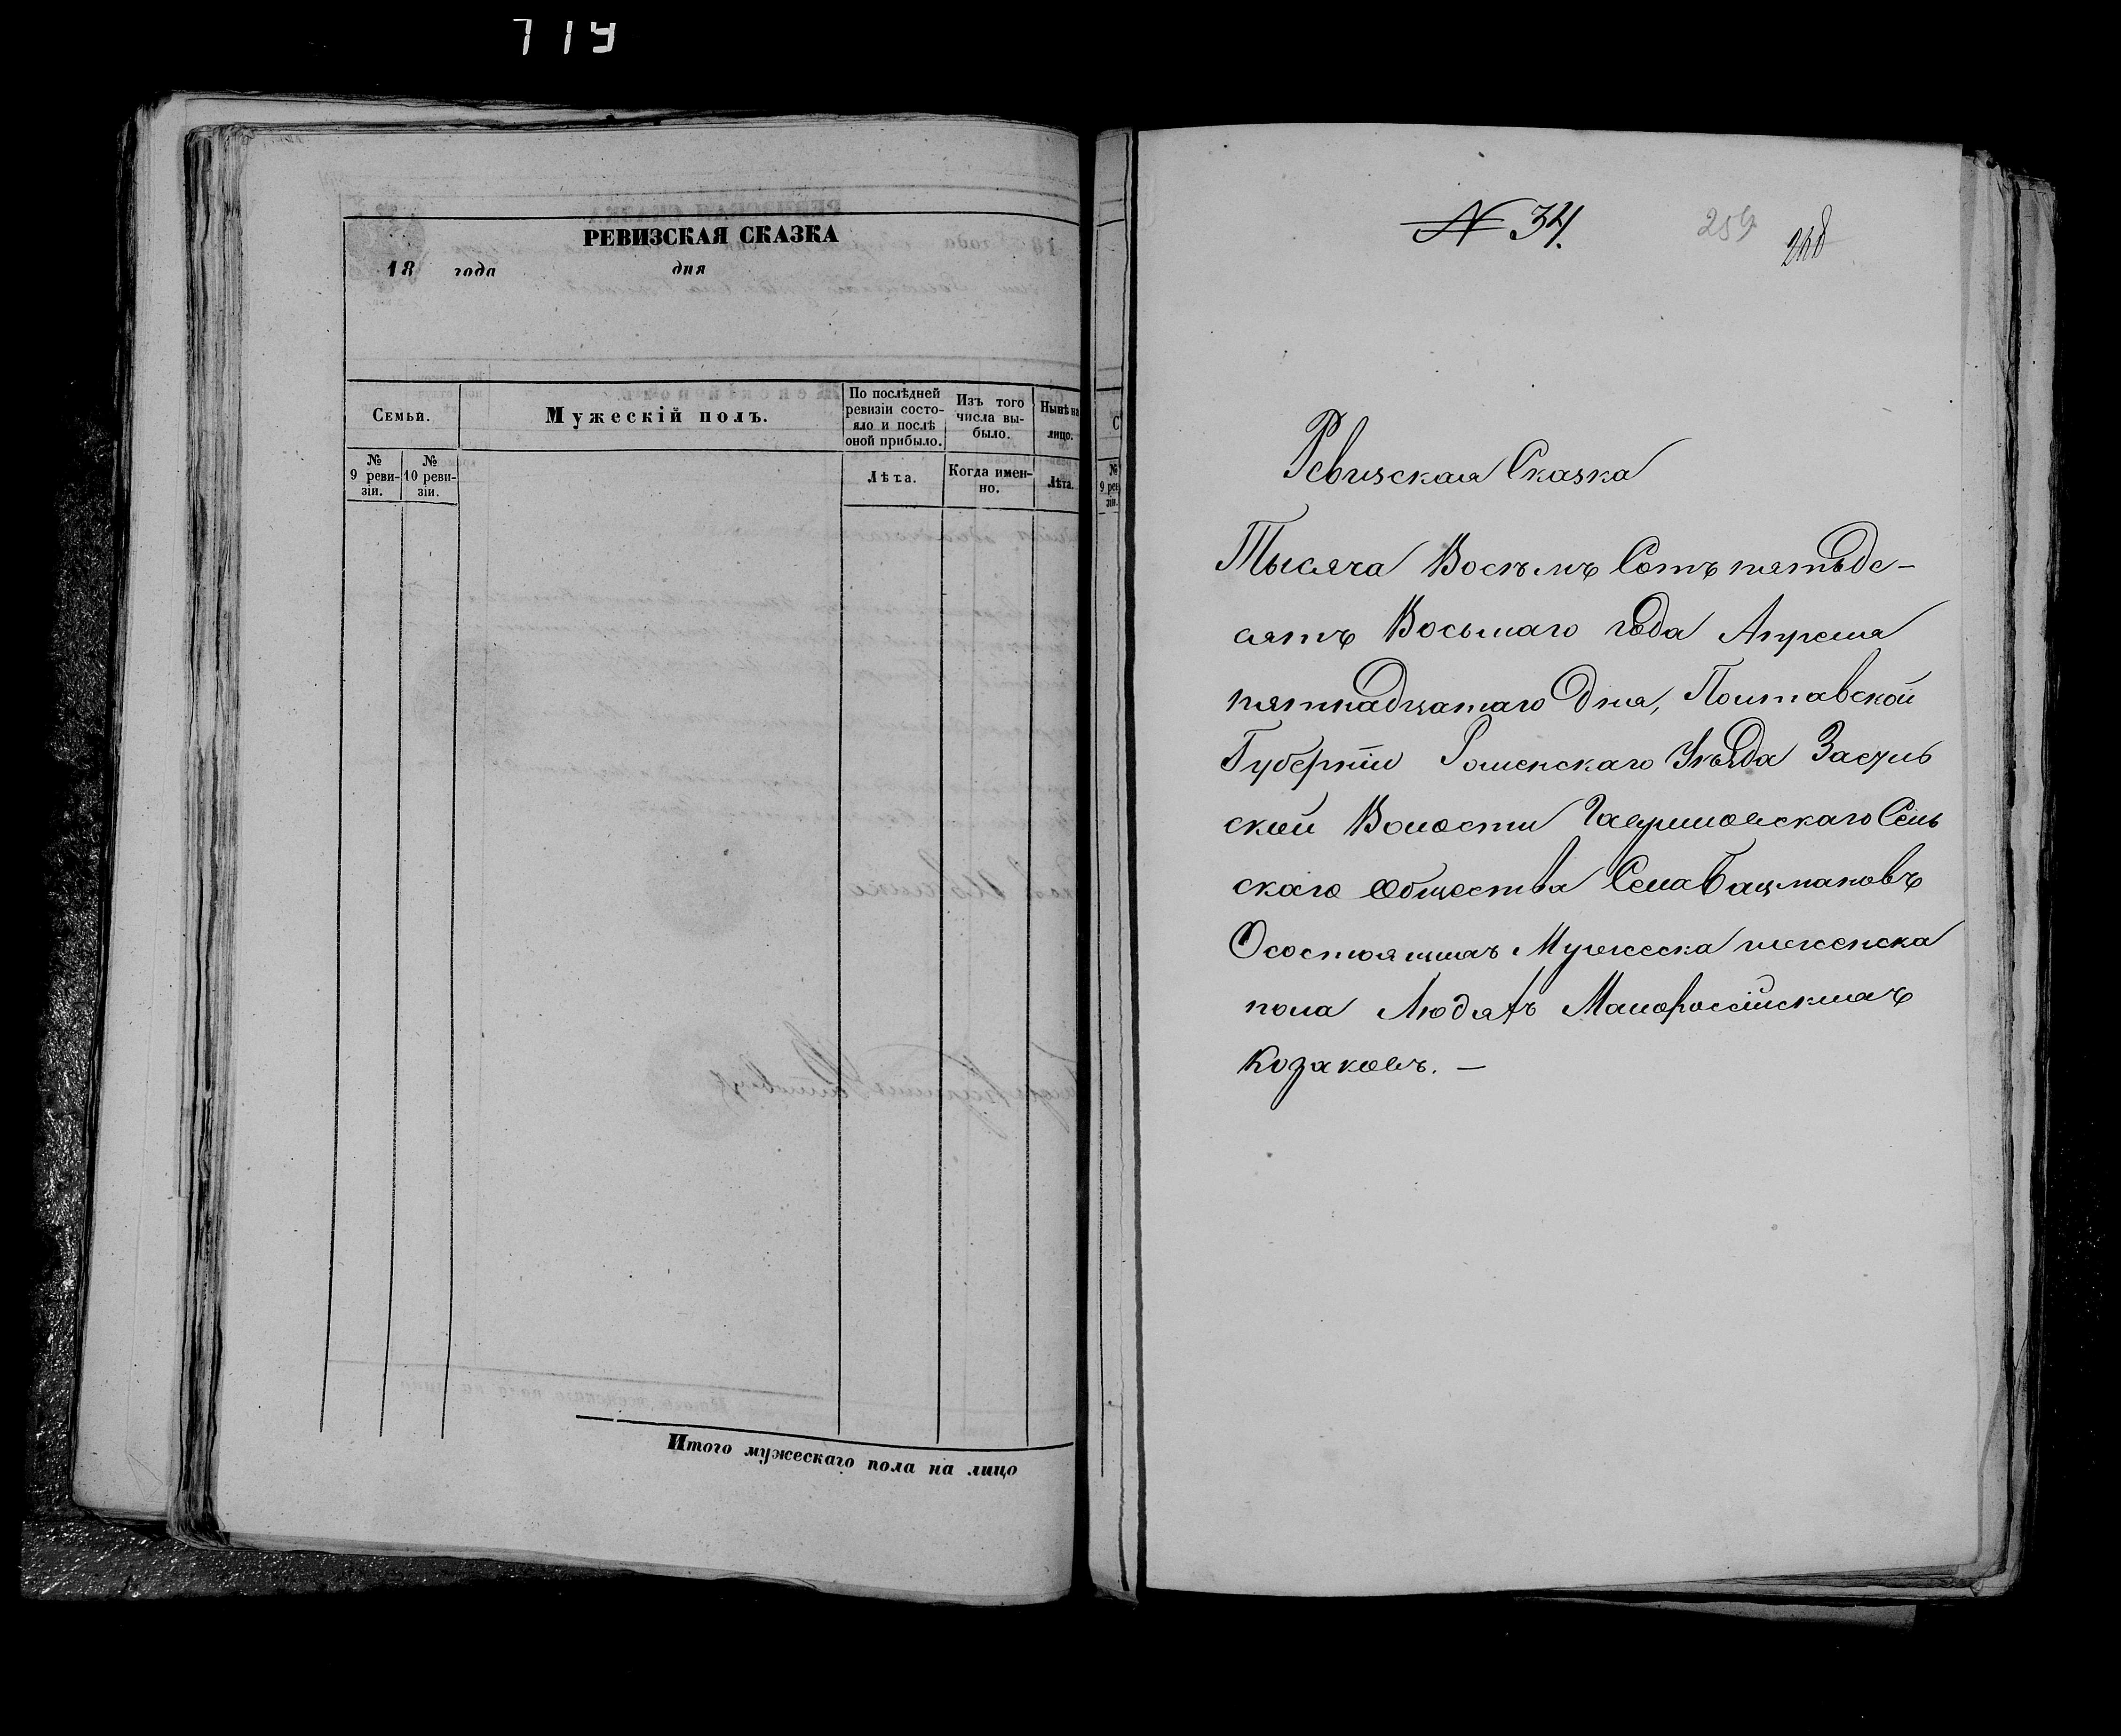 719
РЕВИЗСКАЯ СКАЗКА
18 года дня
Семьи.
Мужескій полъ.
По послѣдней ревизіи состо-
яло и послѣ оной прибыло.
Изъ того числа вы-
было.
Нынѣ на лицо.
№ 9 реви-
зіи.
№ 10 реви-
зіи.
Лѣта.
Когда имен-
но.
Лѣта.
Итого мужескаго пола на лицо
№ 34.
259
Ревизская Сказка
Тысяча Восѣмъ Сотъ пятьде-
сятъ Восьмаго года Апреля
пятнадцатаго Дня, Полтавской
Губерніи Роменскаго Уѣзда Засуль
ской Волости Гаврилоескаго Сель
скаго Общества Села Бацмановъ
О состоящихъ Мужеска и женска
пола Людяхъ Малороссійскихъ
Козаковъ. —